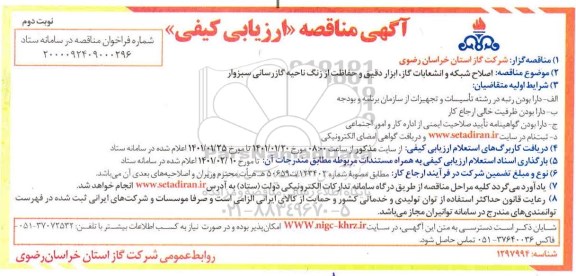 نوبت دوم
آگهی مناقصه «ارزیابی کیفی»
شماره فراخوان مناقصه در سامانه ستاد
۲۰۰۰۰۹۲۴۰۹۰۰۰۲۹۶
۱) مناقصه‌گزار: شرکت گاز استان خراسان رضوی
۲) موضوع مناقصه: اصلاح شبکه و انشعابات گاز، ابزار دقیق و حفاظت از زنگ ناحیه گازرسانی سبزوار
۳) شرایط اولیه متقاضیان:
الف- دارا بودن رتبه در رشته تأسیسات و تجهیزات از سازمان برنامه و بودجه
ب- دارا بودن ظرفیت خالی ارجاع کار
ج- دارا بودن گواهینامه تأیید صلاحیت ایمنی از اداره کار و امور اجتماعی
د- ثبت‌نام در سایت www.setadiran.ir و دریافت گواهی امضای الکترونیکی
۴) دریافت کاربرگ‌های استعلام ارزیابی کیفی: از سایت مذکور از ساعت ۰۸:۰۰ مورخ ۱۴۰۱/۰۱/۲۰ تا مورخ ۱۴۰۱/۰۱/۲۵ اعلام شده در سامانه ستاد
۵) بارگذاری اسناد استعلام ارزیابی کیفی به همراه مستندات مربوطه مطابق مندرجات آن: تا مورخ ۱۴۰۱/۰۲/۱۰ اعلام شده در سامانه ستاد
۶) نوع و مبلغ تضمین شرکت در فرآیند ارجاع کار: مطابق مصوبه شماره ۱۲۳۴۰۲/ت۵۰۶۵۹هـ هیأت محترم وزیران و اصلاحیه‌های بعدی آن می‌باشد.
۷) یادآور می‌گردد کلیه مراحل مناقصه از طریق درگاه سامانه تدارکات الکترونیکی دولت (ستاد) به آدرس www.setadiran.ir انجام خواهد شد.
۸) رعایت قانون حداکثر استفاده از توان تولیدی و خدماتی کشور و حمایت از کالای ایرانی الزامی است و صرفا موسسات و شرکت‌های ایرانی ثبت شده در فهرست توانمندی‌های مندرج در سامانه توانیران مجاز می‌باشد.
شایان ذکر است دسترسی به متن این آگهی، در سایت WWW.nigc-khrz.ir امکان‌پذیر بوده و در صورت نیاز به کسب اطلاعات بیشتر با تلفن: ۳۷۰۷۲۵۳۲-۰۵۱ فاکس ۳۷۶۴۰۰۳۶-۰۵۱ تماس حاصل شود.
شناسه: ۱۲۹۷۹۹۴
روابط عمومی شرکت گاز استان خراسان رضوی
۰۲۱-۸۸۳۴۹۶۷۰-۵